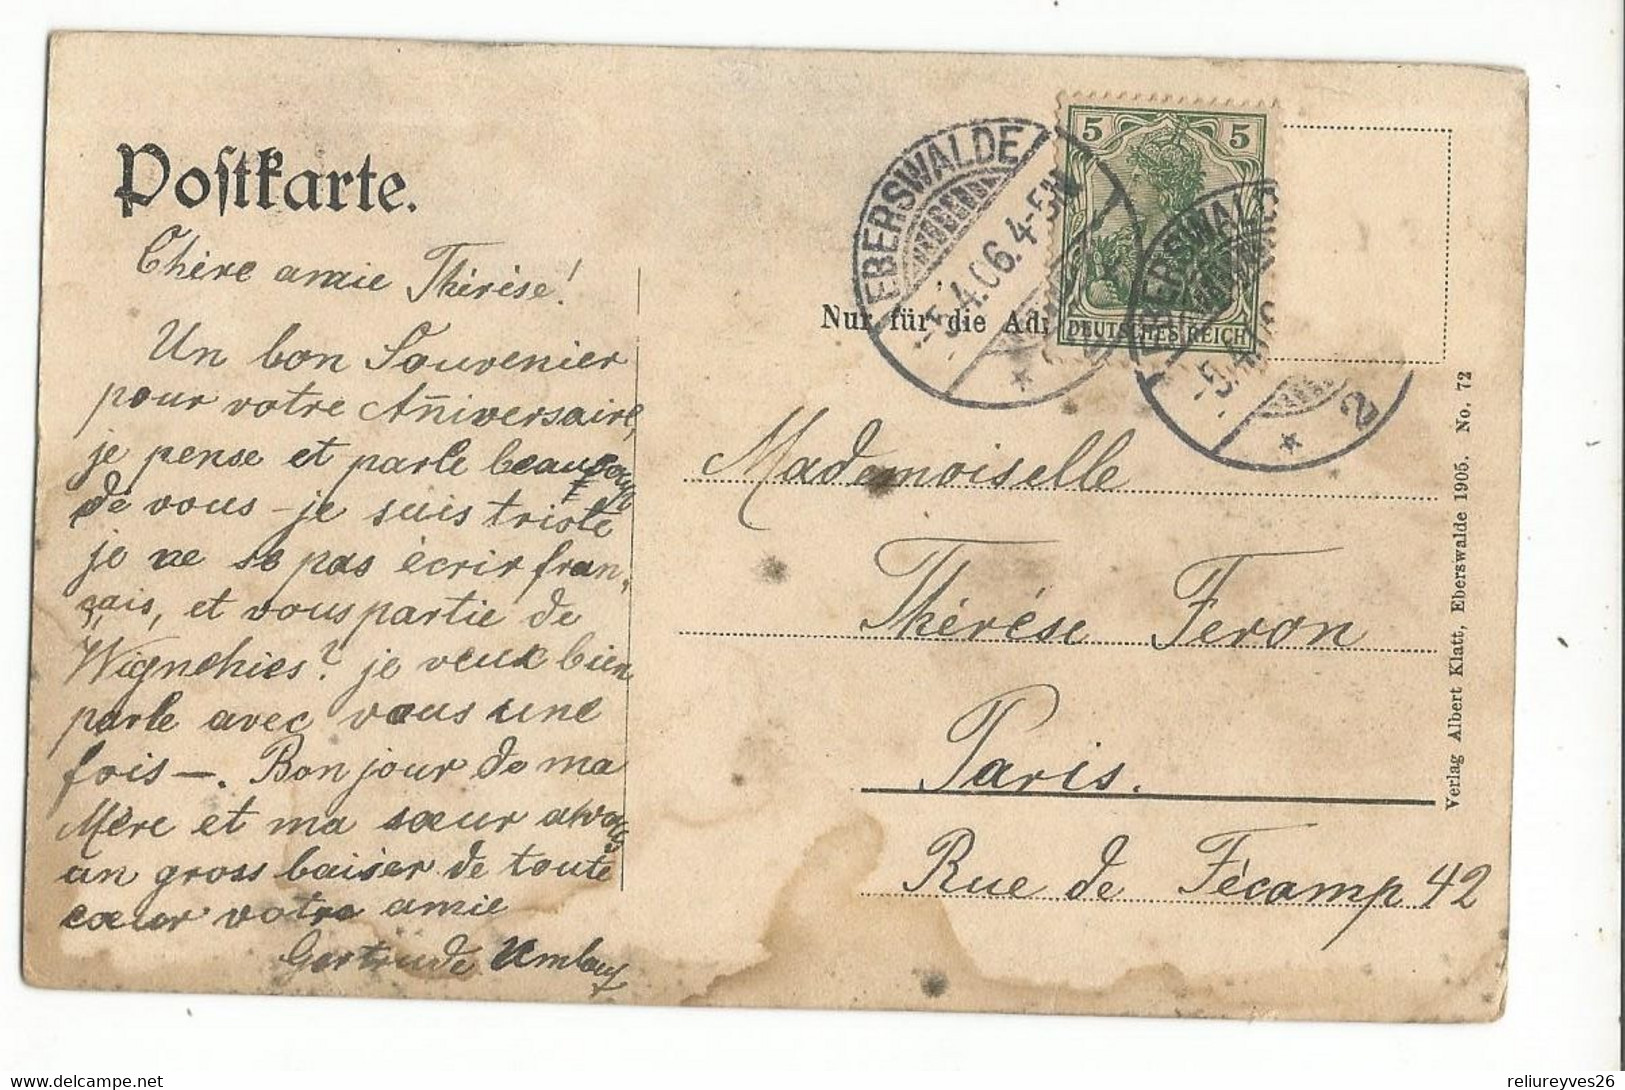 Postkarte.
Chère amie Thérèse!
Un bon Souvenier
pour votre Anniversaire,
je pense et parle beaucoup
de vous – je suis triste
je ne se pas écrir fran-
çais, et vous partie de
Wignehies? je veux bien
parle avec vous une
fois —. Bonjour de ma
Mère et ma sœur
un gross baiser de toute
cœur votre amie
Gertrude
EBERSWALDE
-5.4.06. 4-5N
5 5
DEUTSCHES REICH
EBERSWALDE
-5.4.
2
Nur für die Adr
Mademoiselle
Thérése Feron
Paris.
Rue de Fècamp 42
Verlag Albert Klatt, Eberswalde 1905. No. 72
reliureyves26